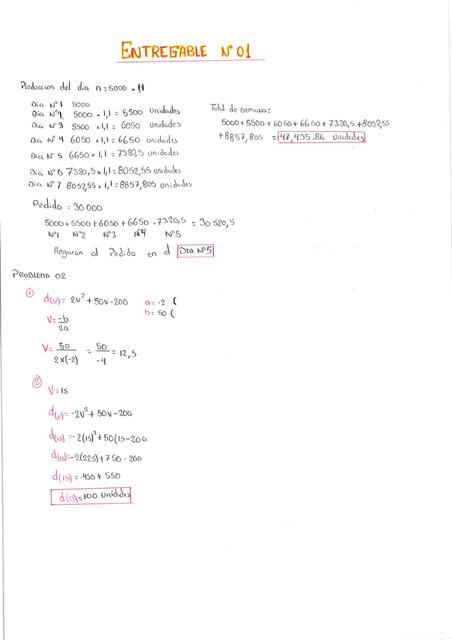 ENTREGABLE N° 01
Produccion del dia n=5000 . 11
Dia N°1 5000
Dia N°2 5000 x 1,1 = 5500 unidades
Dia N°3 5500 x 1,1 = 6050 unidades
Dia N°4 6050 x 1,1 = 6650 unidades
Dia N°5 6650 x 1,1 = 7320,5 unidades
Dia N°6 7320,5 x 1,1 = 8052,55 unidades
Dia N°7 8052,55 x 1,1 = 8857,805 unidades
Total de semana:
5000 + 5500 + 6050 + 6650 + 7320,5 + 8052,55
+ 8857,805 = 47,435.86 Unidades
Pedido = 30.000
5000 + 5500 + 6050 + 6650 + 7320,5 = 30 520,5
N°1 N°2 N°3 N°4 N°5
llegaran al Pedido en el DIA N°5
PROBLEMA 02
① d(v) = 2v² + 50v - 200 a = -2 (
V = -b/2a b = 50 (
V = 50/2x(-2) = 50/-4 = 12,5
② V = 15
d(v) = -2v² + 50v - 200
d(15) = -2(15)² + 50(15 - 200
d(15) = -2(225) + 750 - 200
d(15) = -450 + 550
d(15) = 100 unidades